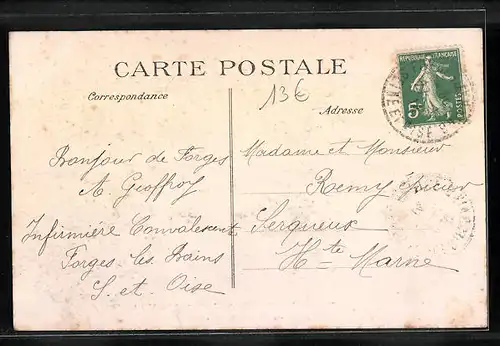 CARTE POSTALE
Correspondance
13€
Adresse
REPUBLIQUE FRANÇAISE
5c
POSTES
Bonjour de Forges
A. Geoffroy
Infirmière Convalescent
Forges les Bains
S. et. Oise
Madame et Monsieur
Remy épicier
Serqueux
Hte Marne